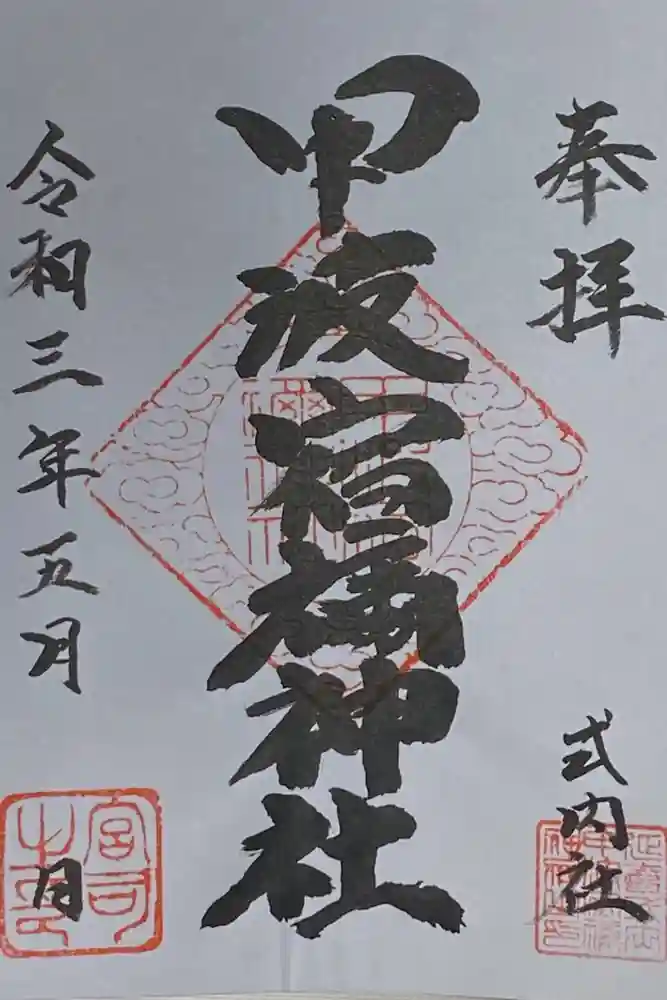 奉拝
式内社
甲波宿禰神社
令和三年五月 日
宮司之印